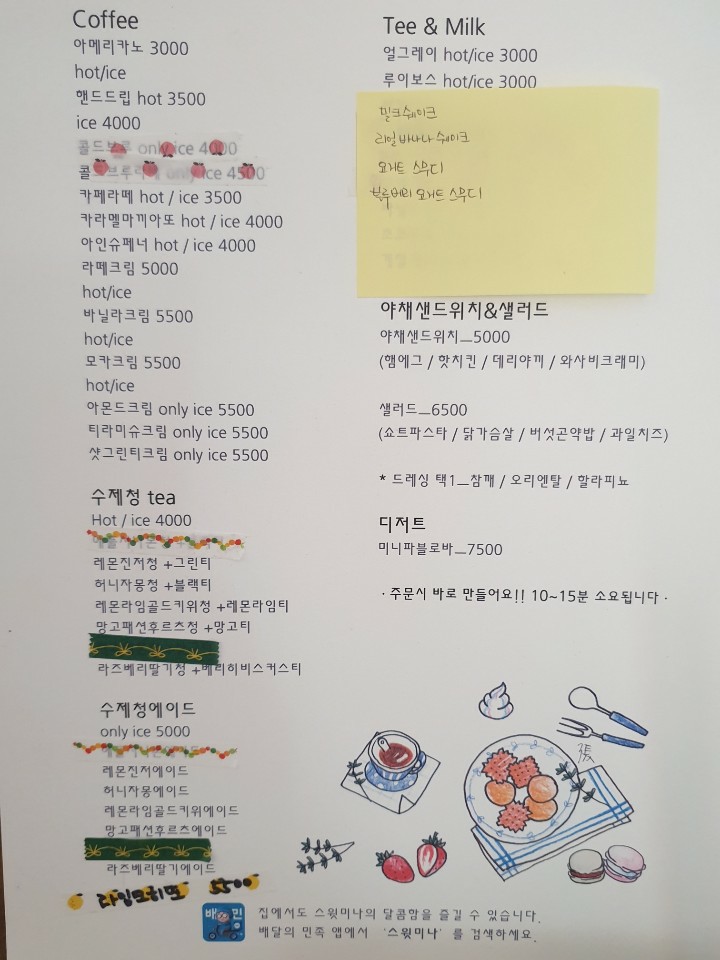 Coffee
아메리카노 3000
hot/ice
핸드드립 hot 3500
ice 4000
콜드브루 only ice 4000
only ice 4500
카페라떼 hot / ice 3500
카라멜마끼아또 hot / ice 4000
아인슈페너 hot / ice 4000
라떼크림 5000
hot/ice
바닐라크림 5500
hot/ice
모카크림 5500
hot/ice
아몬드크림 only ice 5500
티라미슈크림 only ice 5500
샷그린티크림 only ice 5500
수제청 tea
Hot / ice 4000
레몬진저청 +그린티
허니자몽청 +블랙티
레몬라임골드키위청 +레몬라임티
망고패션후르츠청 +망고티
라즈베리딸기청 +베리히비스커스티
수제청에이드
only ice 5000
레몬진저에이드
허니자몽에이드
레몬라임골드키위에이드
망고패션후르츠에이드
라즈베리딸기에이드
라임모히또 5500
Tee & Milk
얼그레이 hot/ice 3000
루이보스 hot/ice 3000
밀크쉐이크
리얼바나나 쉐이크
요거트 스무디
블루베리 요거트 스무디
야채샌드위치&샐러드
야채샌드위치__5000
(햄에그 / 핫치킨 / 데리야끼 / 와사비크래미)
샐러드__6500
(쇼트파스타 / 닭가슴살 / 버섯곤약밥 / 과일치즈)
* 드레싱 택1__참깨 / 오리엔탈 / 할라피뇨
디저트
미니파블로바__7500
· 주문시 바로 만들어요!! 10~15분 소요됩니다 ·
張
배민
집에서도 스윗미나의 달콤함을 즐길 수 있습니다.
배달의 민족 앱에서 '스윗미나' 를 검색하세요.